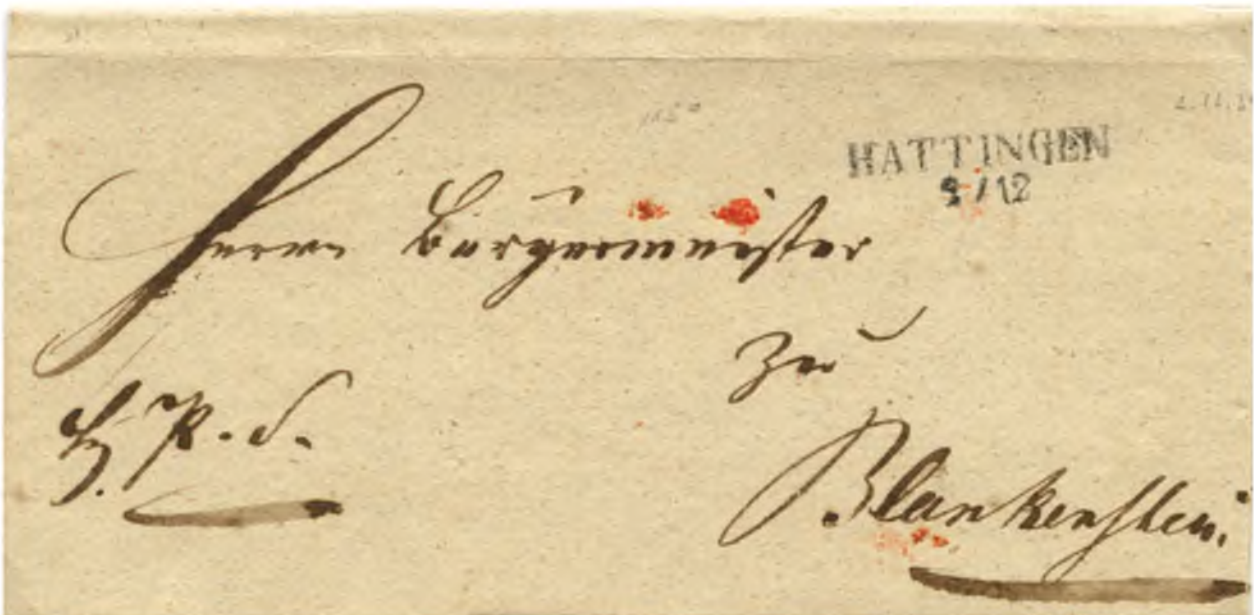 HATTINGEN
9/12
Herrn Bürgermeister
zu
Blankenstein.